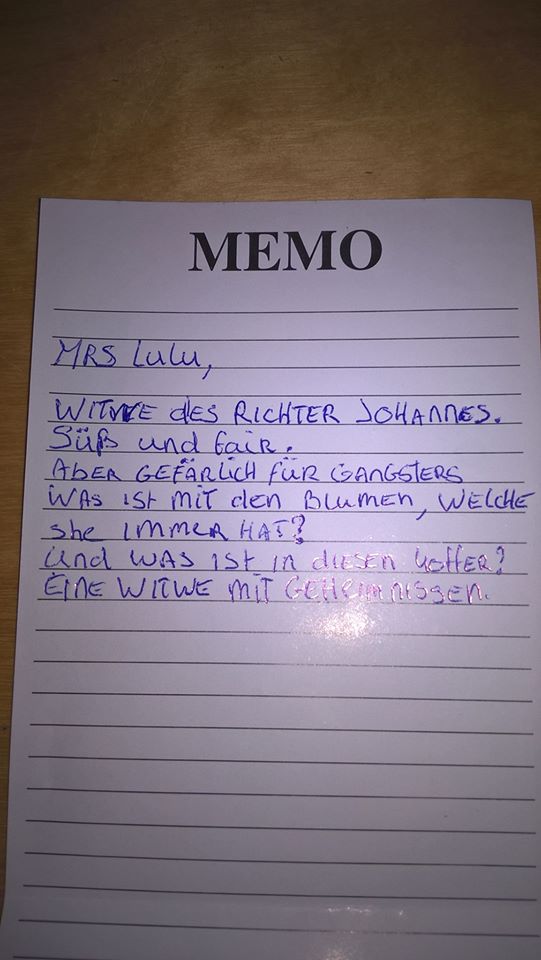 MEMO
MRS LuLu,
WITWE des RICHTER JOHANNES.
Süß und fair.
ABER GEFÄRLICH FÜR GANGSTERS
WAS ist mit den BLUMEN, WELCHE
she IMMER HAT?
Und WAS IST in diesen Koffer?
EINE WITWE MIT GEHEIMNISSEN.